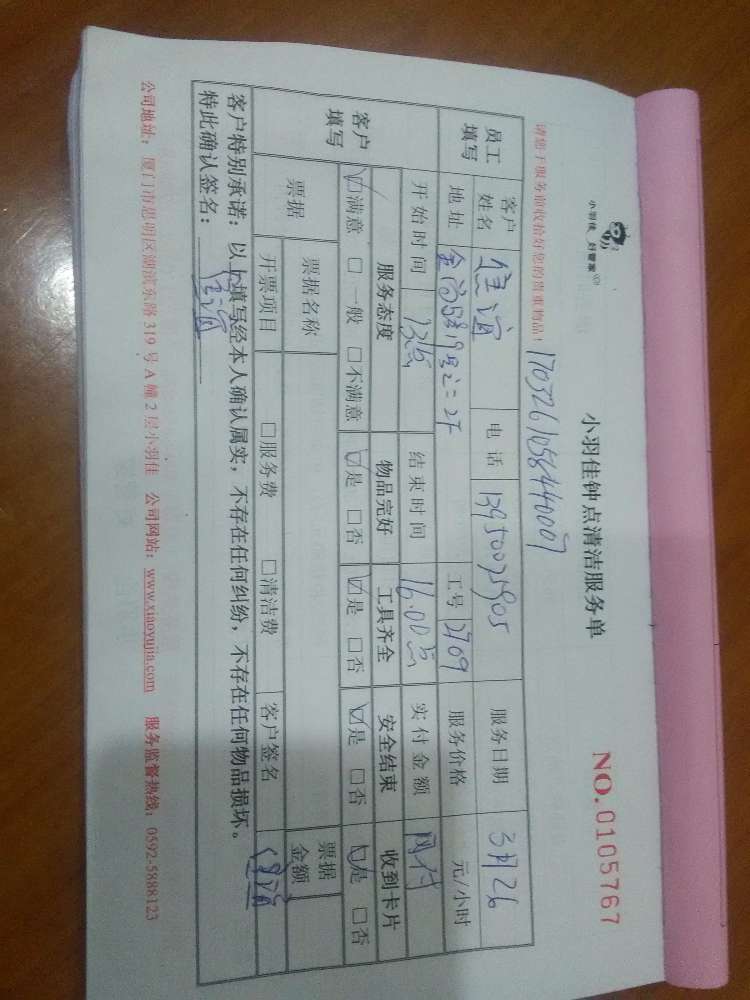 小羽佳 好管家
小羽佳钟点清洁服务单
NO.0105767
请您于服务前收拾好您的贵重物品！
1703261058440007
员工填写 客户姓名 电话 13950075905 服务日期 3月26
地址 工号 2709 服务价格 元/小时
客户填写 开始时间 结束时间 16.00点 实付金额 网付
服务态度 物品完好 工具齐全 安全结束 收到卡片
☑满意 □一般 □不满意 ☑是 □否 ☑是 □否 ☑是 □否 ☑是 □否
票据 票据名称 票据金额
开票项目 □服务费 □清洁费 客户签名
客户特别承诺：以上填写经本人确认属实，不存在任何纠纷，不存在任何物品损坏。
特此确认签名：
公司地址：厦门市思明区湖滨东路319号A幢2层小羽佳 公司网站：www.xiaoyujia.com 服务监督热线：0592-5888123